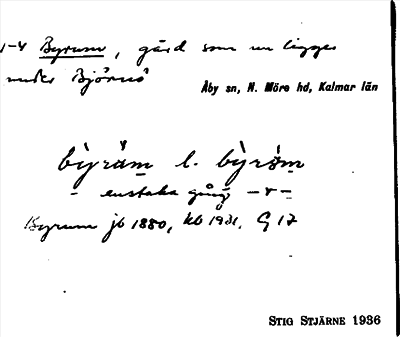 1-4 Byrum, gård som nu ligger
under Björnö
Åby sn, N. Möre hd, Kalmar län
bỳrä́m l. bỳrö̀m
- enstaka gång -r-
Byrum jb 1880, kb 1931. G 17
STIG STJÄRNE 1936